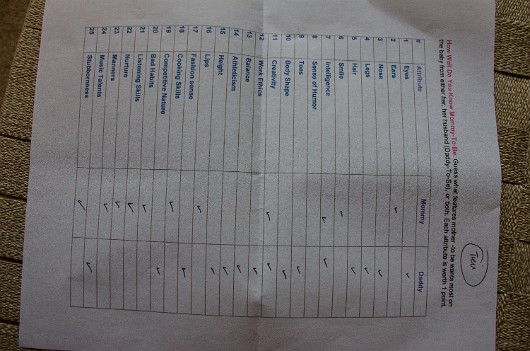 How Well Do You Know Mommy-To-Be. Guess what features mother -to be wants most on
the baby from either her, her husband (Daddy-To-Be), or both. Each attribute is worth 1 point.
# Attribute Mommy Daddy
1 Eyes
2 Ears
3 Nose
4 Legs
5 Hair
6 Smile
7 Intelligence
8 Sense of Humor
9 Toes
10 Body Shape
11 Creativity
12 Work Ethics
13 Balance
14 Athleticism
15 Height
16 Lips
17 Fashion sense
18 Cooking Skills
19 Competitive Nature
20 Bad Habits
21 Listening Skills
22 Nurture
23 Manners
24 Music Talents
25 Stubbornness